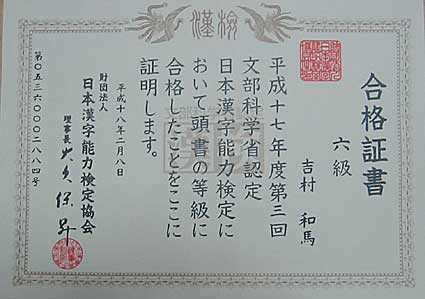 漢検
合格証書
六級
吉村 和馬
平成十七年度第三回
文部科学省認定
日本漢字能力検定に
おいて頭書の等級に
合格したことをここに
証明します。
平成十八年二月八日
財団法人
日本漢字能力検定協会
理事長 大久保 昇
第〇五三六〇〇〇二八八四号